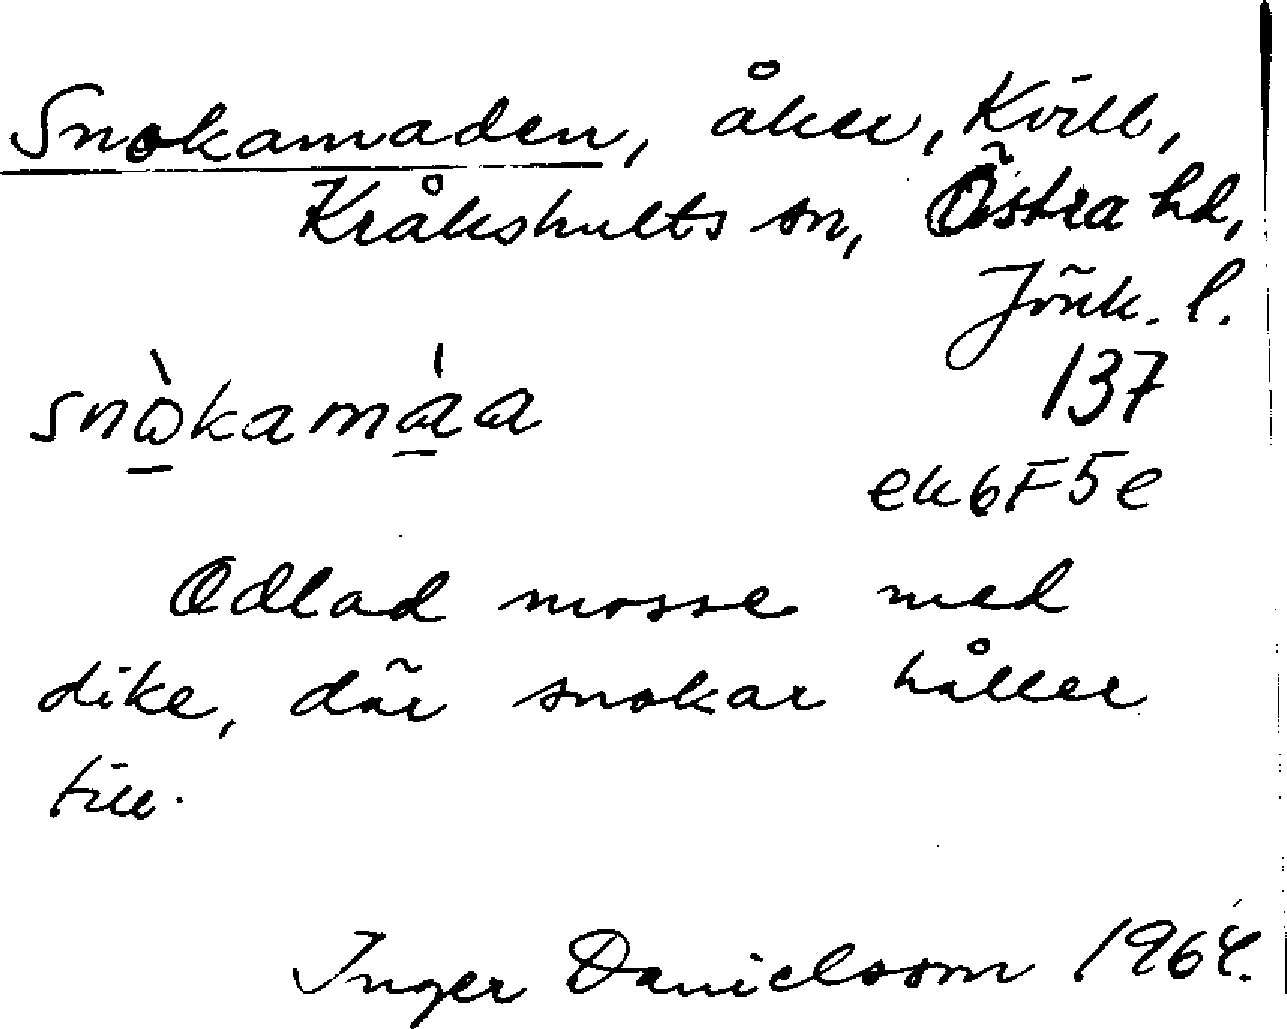 Snokamaden, åker, Kvill,
Kråkshults sn, Östra hd,
Jönk. l.
snò̱kamà̱a
137
ek6F5e
Odlad mosse med
dike, där snokar håller
till.
Inger Danielsson 1964.